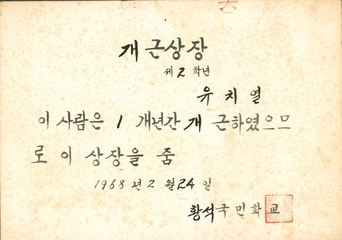 개근상장
제2학년
유치열
이 사람은 1 개년간 개 근하였으므
로 이 상장을 줌
1968년 2월 24일
황석국민학교